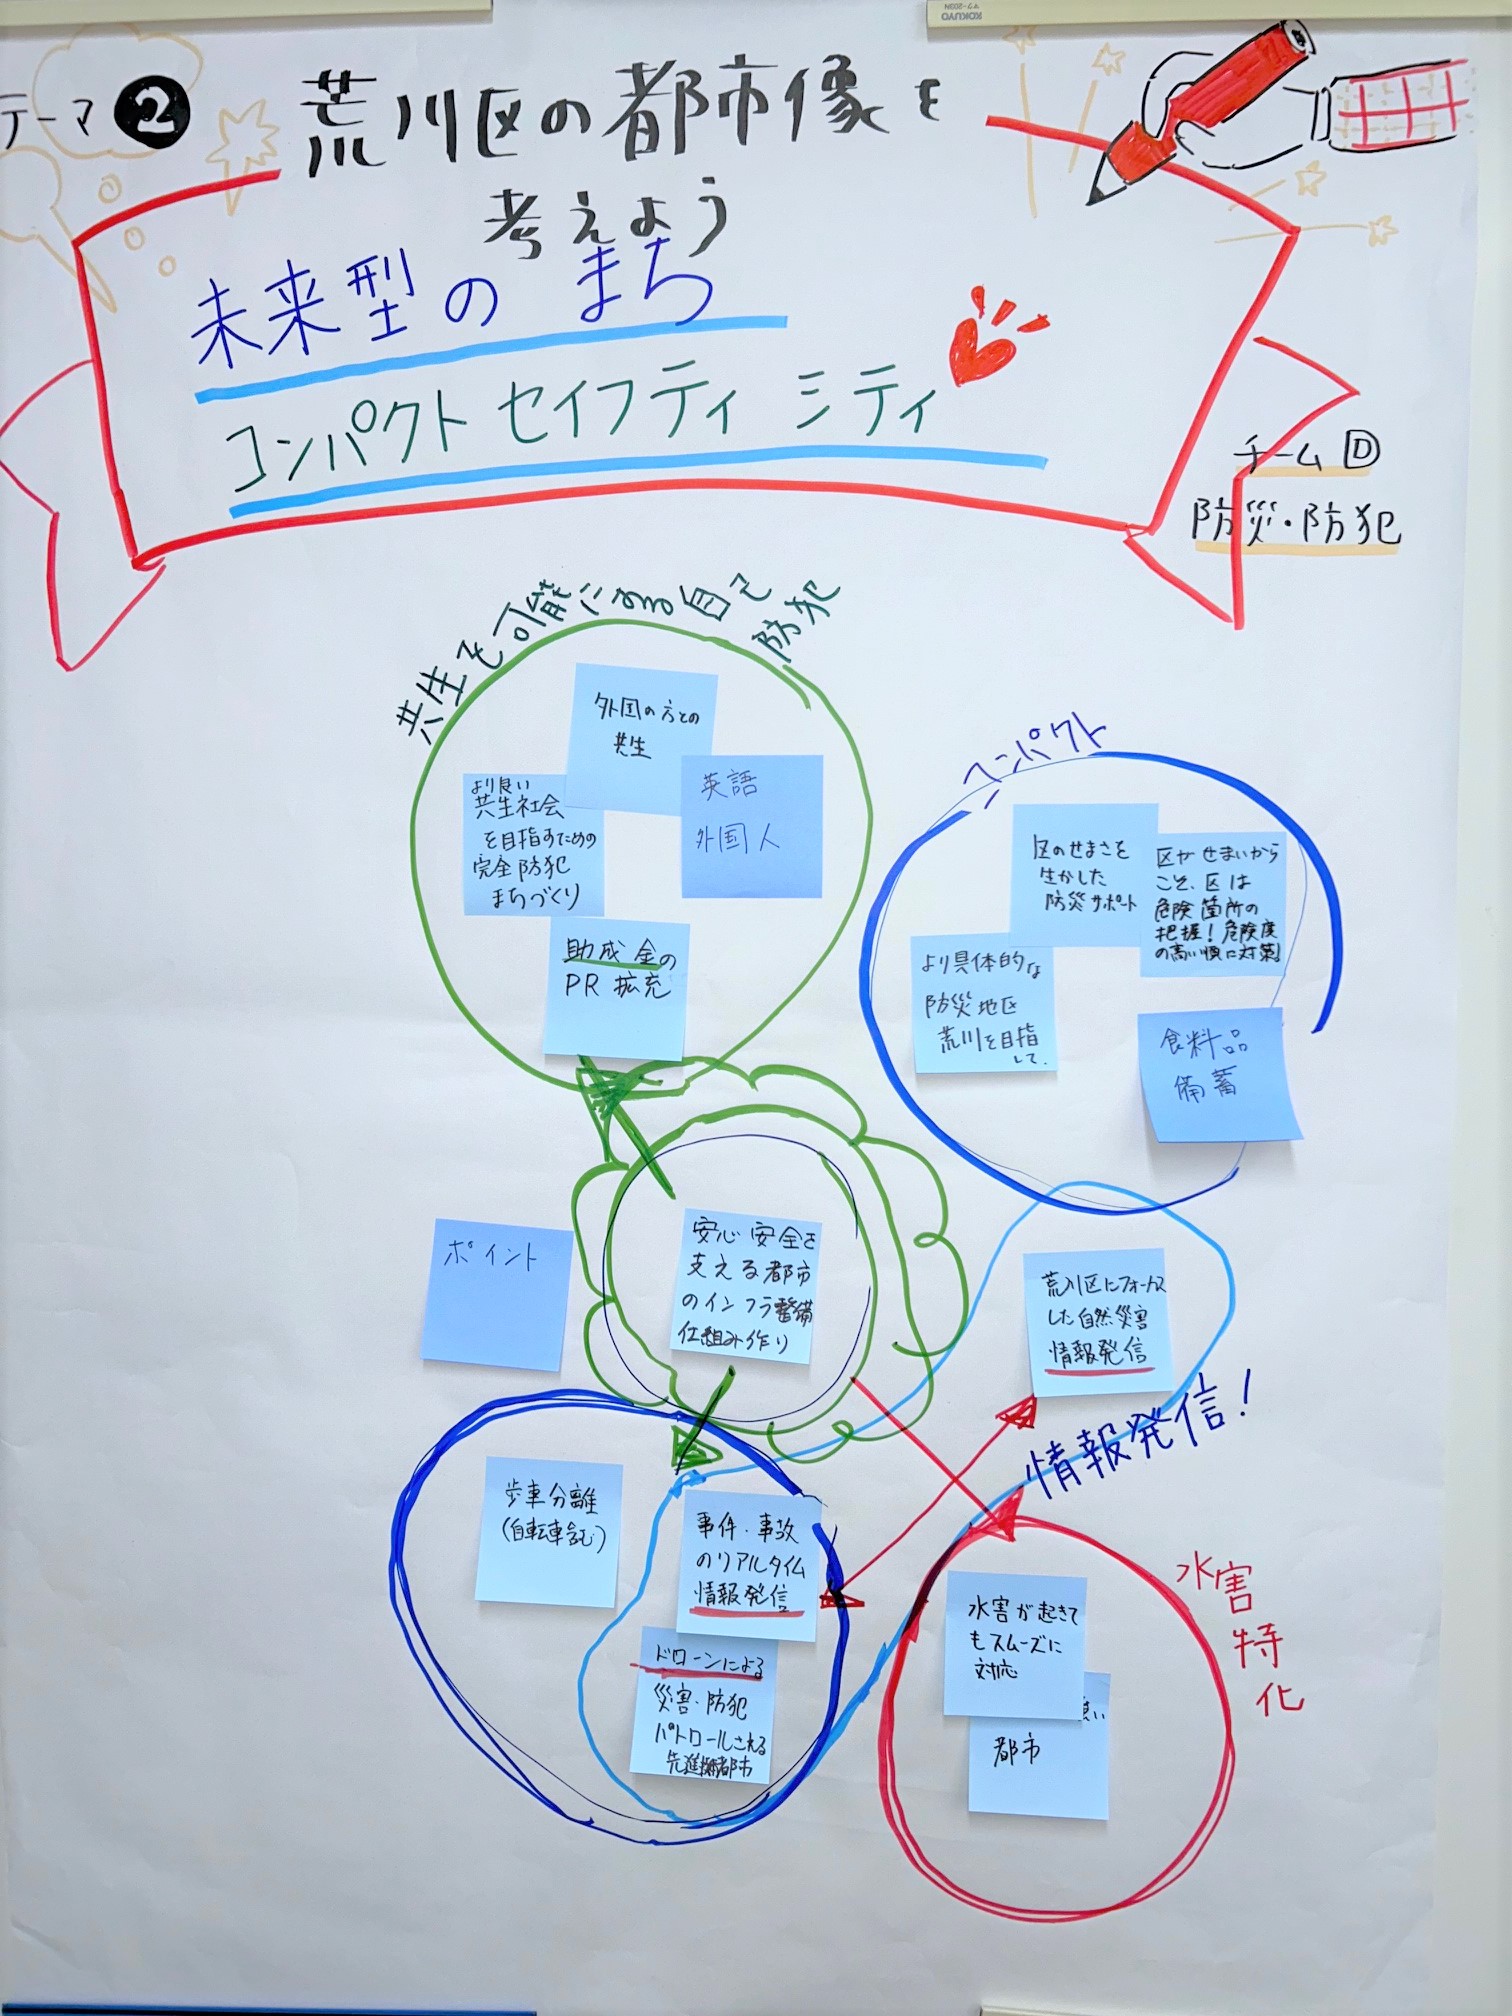 KOKUYO
テーマ ❷ 荒川区の都市像を
考えよう
未来型の まち
コンパクト セイフティ シティ
チーム D
防災・防犯
共生を可能にする自己
防犯
外国の方との
共生
より良い
共生社会
を目指すための
完全防犯
まちづくり
英語
外国人
助成金の
PR 拡充
コンパクト
区のせまさを
生かした
防災サポート
区がせまいから
こそ、区は
危険箇所の
把握！危険度
の高い順に対策！
より具体的な
防災地区
荒川を目指
して、
食料品
備蓄
安心安全を
支える都市
のインフラ整備
仕組み作り
ポイント
荒川区にフォーカス
した自然災害
情報発信
情報発信！
歩車分離
(自転車含む)
事件・事故
のリアルタイム
情報発信
ドローンによる
災害・防犯
パトロールされる
先進都市
水害特化
水害が起きて
もスムーズに
対応
い
都市